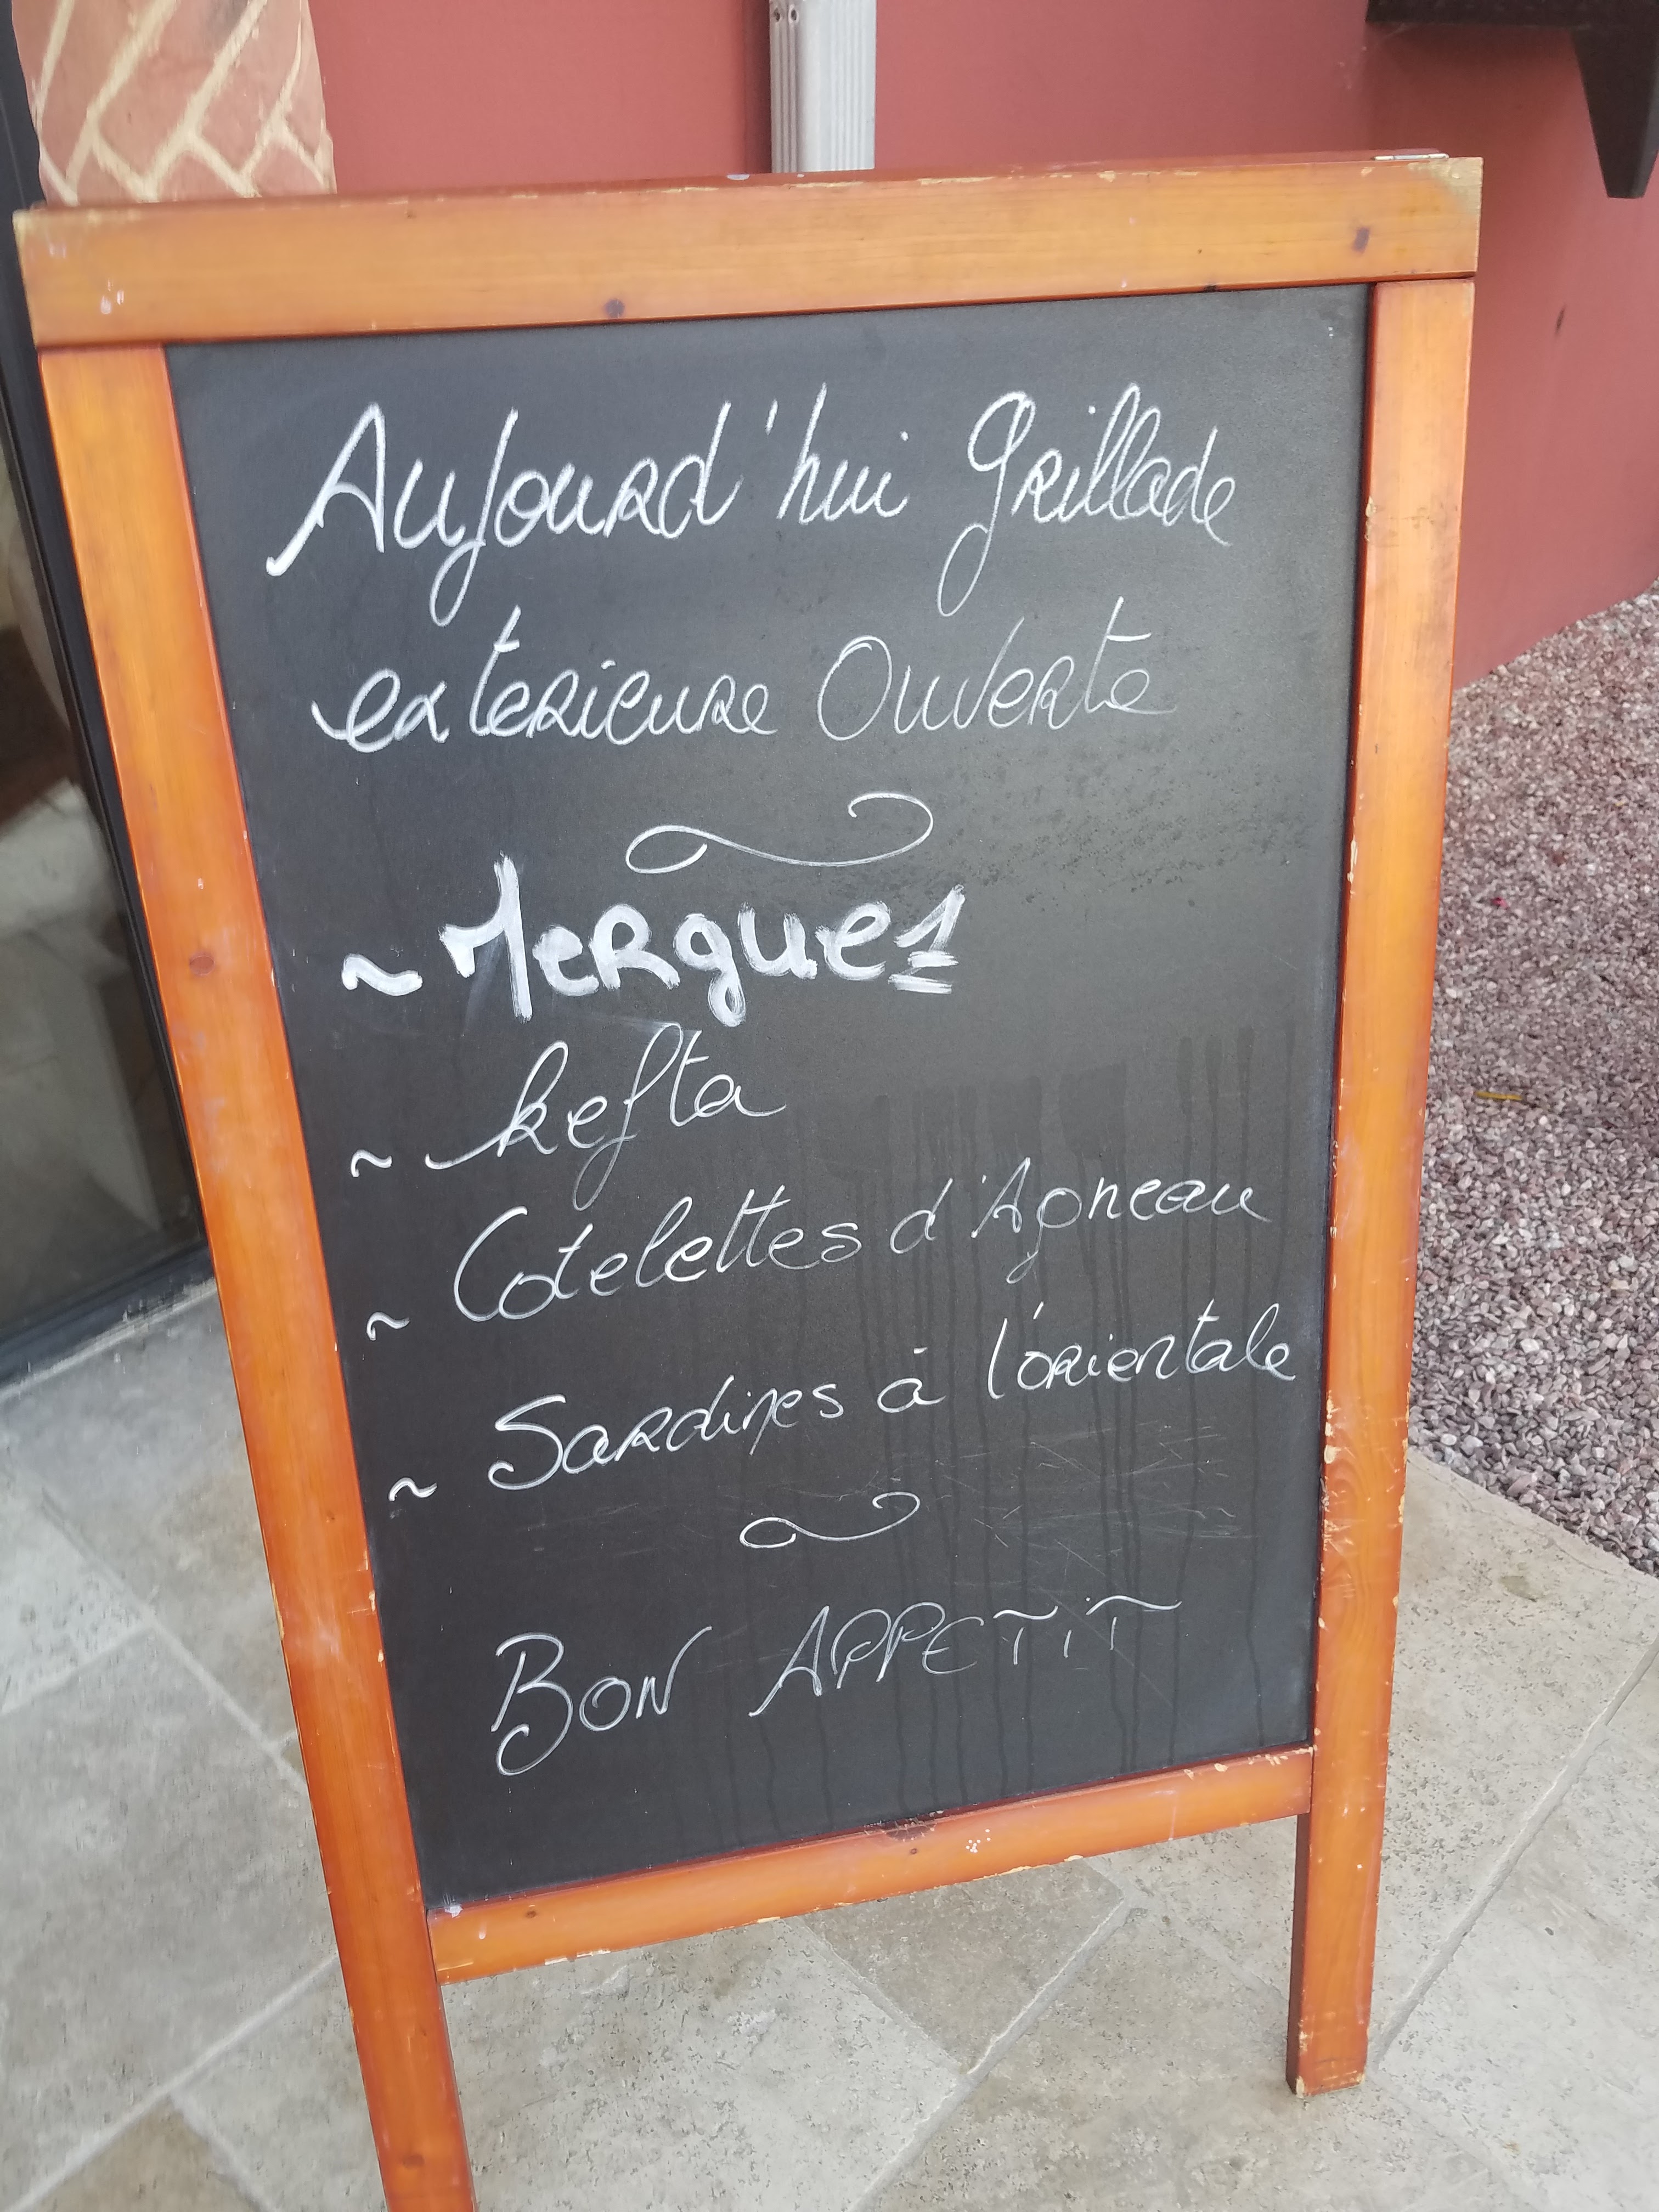 Aujourd'hui Grillade
exterieure Ouverte
~ Merguez
~ kefta
~ Cotelettes d'Agneau
~ Sardines à l'orientale
BON APPETiT